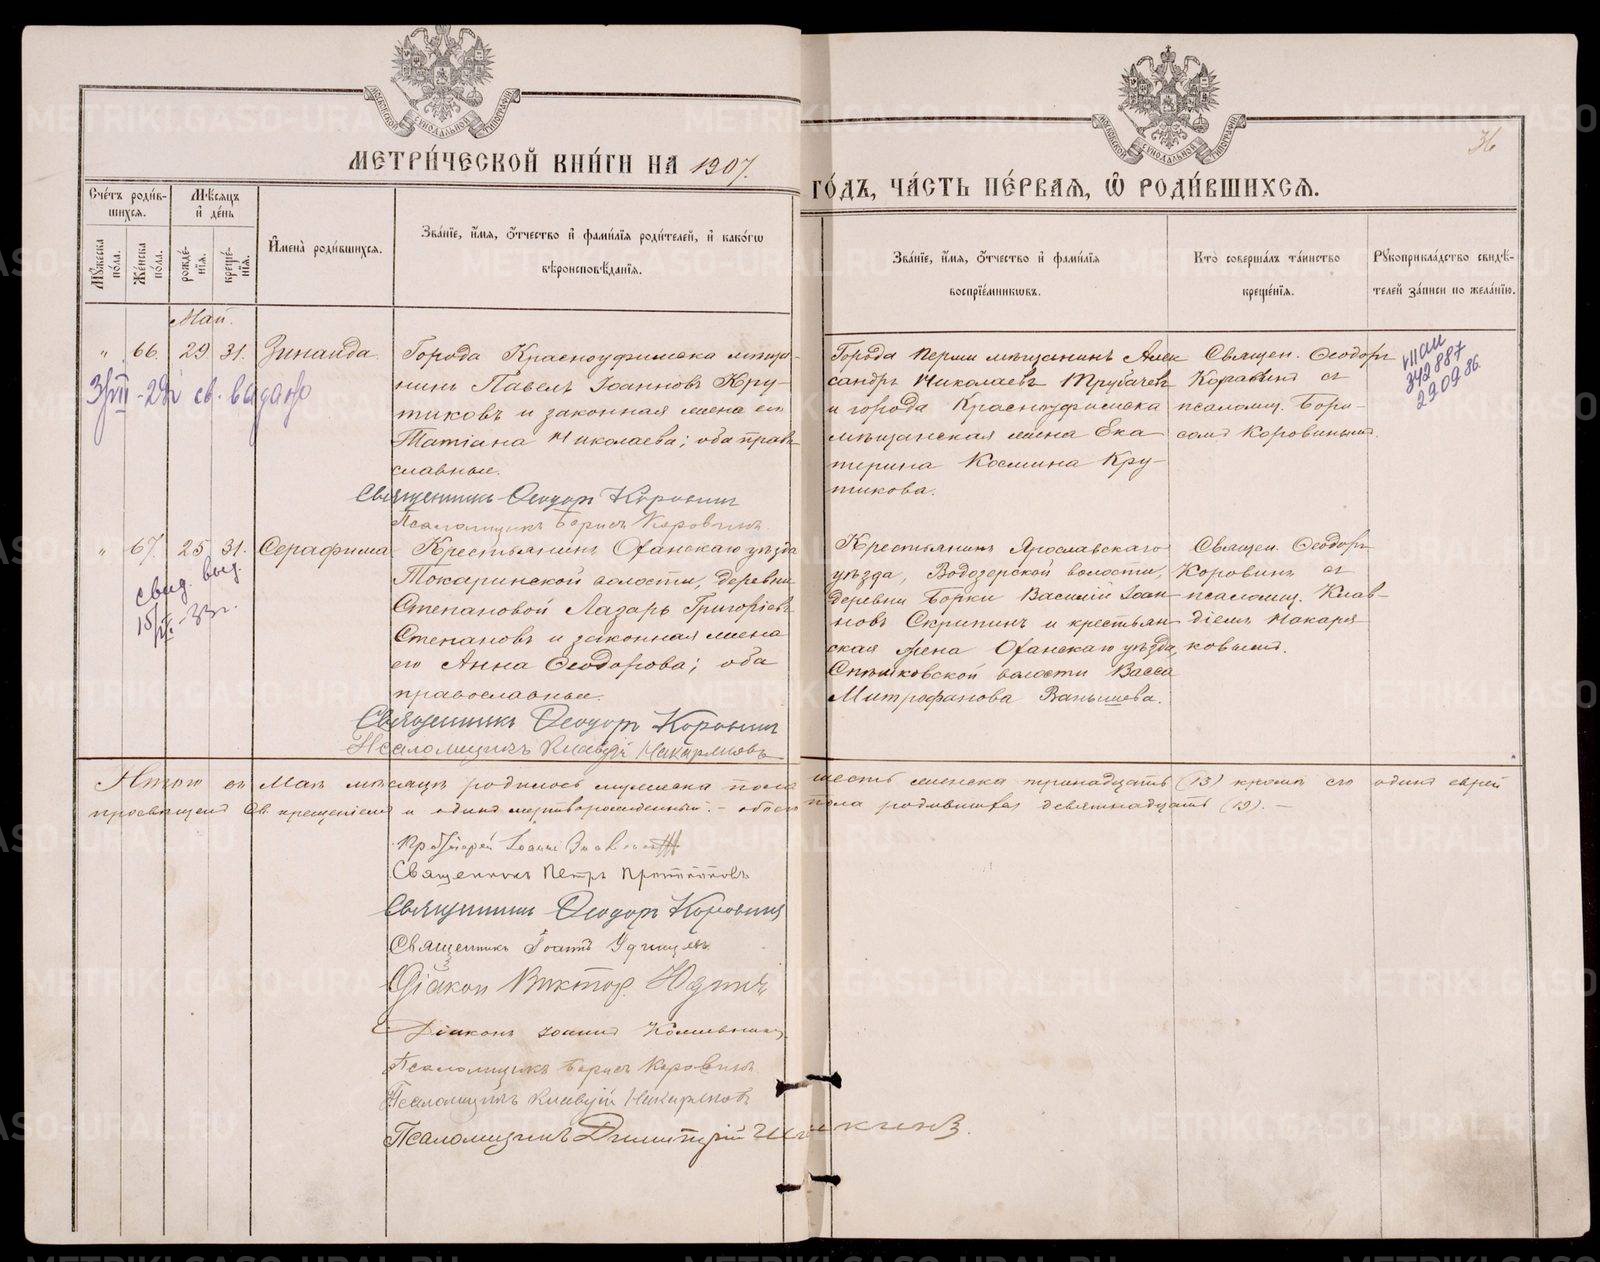 МОСКОВСКОЙ СѴНОДАЛЬНОЙ ТИПОГРАФІИ
МОСКОВСКОЙ СѴНОДАЛЬНОЙ ТИПОГРАФІИ
36
МЕТРИ́ЧЕСКОЙ КНИ́ГИ НА 1907.
ГО́ДЪ, ЧА́СТЬ ПЕ́РВАЯ, Ѿ РОДИ́ВШИХСЯ.
Сче́тъ роди́в-
шихся.
Мѣ́сяцъ
и҆ де́нь
Мꙋ́жеска по́ла.
Же́нска по́ла.
рожде́-
нїя.
креще́-
нїя.
И҆мена̀ роди́вшихся.
Зва́нїе, и҆́мя, ѻ҆́тчество и҆ фами́лїя роди́телей, и҆ како́гѡ
вѣроисповѣ́данїя.
Зва́нїе, и҆́мя, ѻ҆́тчество и҆ фами́лїя
воспрїе́мникѡвъ.
Кто̀ соверша́лъ та́инство
креще́нїя.
Рꙋкоприкла́дство свидѣ́-
телей за́писи по жела́нїю.
Май.
" 66. 29 31. Зинаида.
Города Красноуфимска мѣща-
нинъ Павелъ Іоанновъ Кру-
тиковъ и законная жена его
Татіана Николаева; оба право-
славные.
Священникъ Ѳеодоръ Коровинъ
Псаломщикъ Борисъ Коровинъ.
Города Перми мѣщанинъ Алек
сандръ Николаевъ Трубачевъ
и города Красноуфимска
мѣщанская жена Ека
терина Космина Кру-
тикова.
Священ. Ѳеодоръ
Коровинъ съ
псаломщ. Бори-
сомъ Коровинымъ.
VII АИ
342887
290986.
" 67. 25 31. Серафима
свид. выд.
Крестьянинъ Оханскаго уѣзда
Токаринской волости, деревни
Степановой Лазарь Григоріевъ
Степановъ и законная жена
его Анна Ѳеодорова; оба
православные.
Священникъ Ѳеодоръ Коровинъ
Псаломщикъ Клавдій Макаряковъ
Крестьянинъ Ярославскаго
уѣзда, Водозерской волости,
деревни Борки Василій Іоан-
новъ Скрипинъ и крестьян-
ская жена Оханскаго уѣзда,
волости Васса
Митрофанова Ваньшева.
Священ. Ѳеодоръ
Коровинъ съ
псаломщ. Клав-
діемъ Макаря
ковымъ.
Итого въ Маѣ мѣсяцѣ родилось мужеска пола шесть женска тринадцать (13) кромѣ сего одинъ еврей
просвѣщенъ Св. крещеніемъ и одинъ мертворожденный. – обоего пола родившихся девятнадцать (19). –
Протоіерей Іоаннъ
Священникъ Петръ
Священникъ Ѳеодоръ Коровинъ
Священникъ Іоаннъ
Діаконъ Викторъ Юдинъ
Діаконъ Іоаннъ
Псаломщикъ Борисъ Коровинъ.
Псаломщикъ Клавдій Макаряковъ
Псаломщикъ Димитрій Шишкинъ.